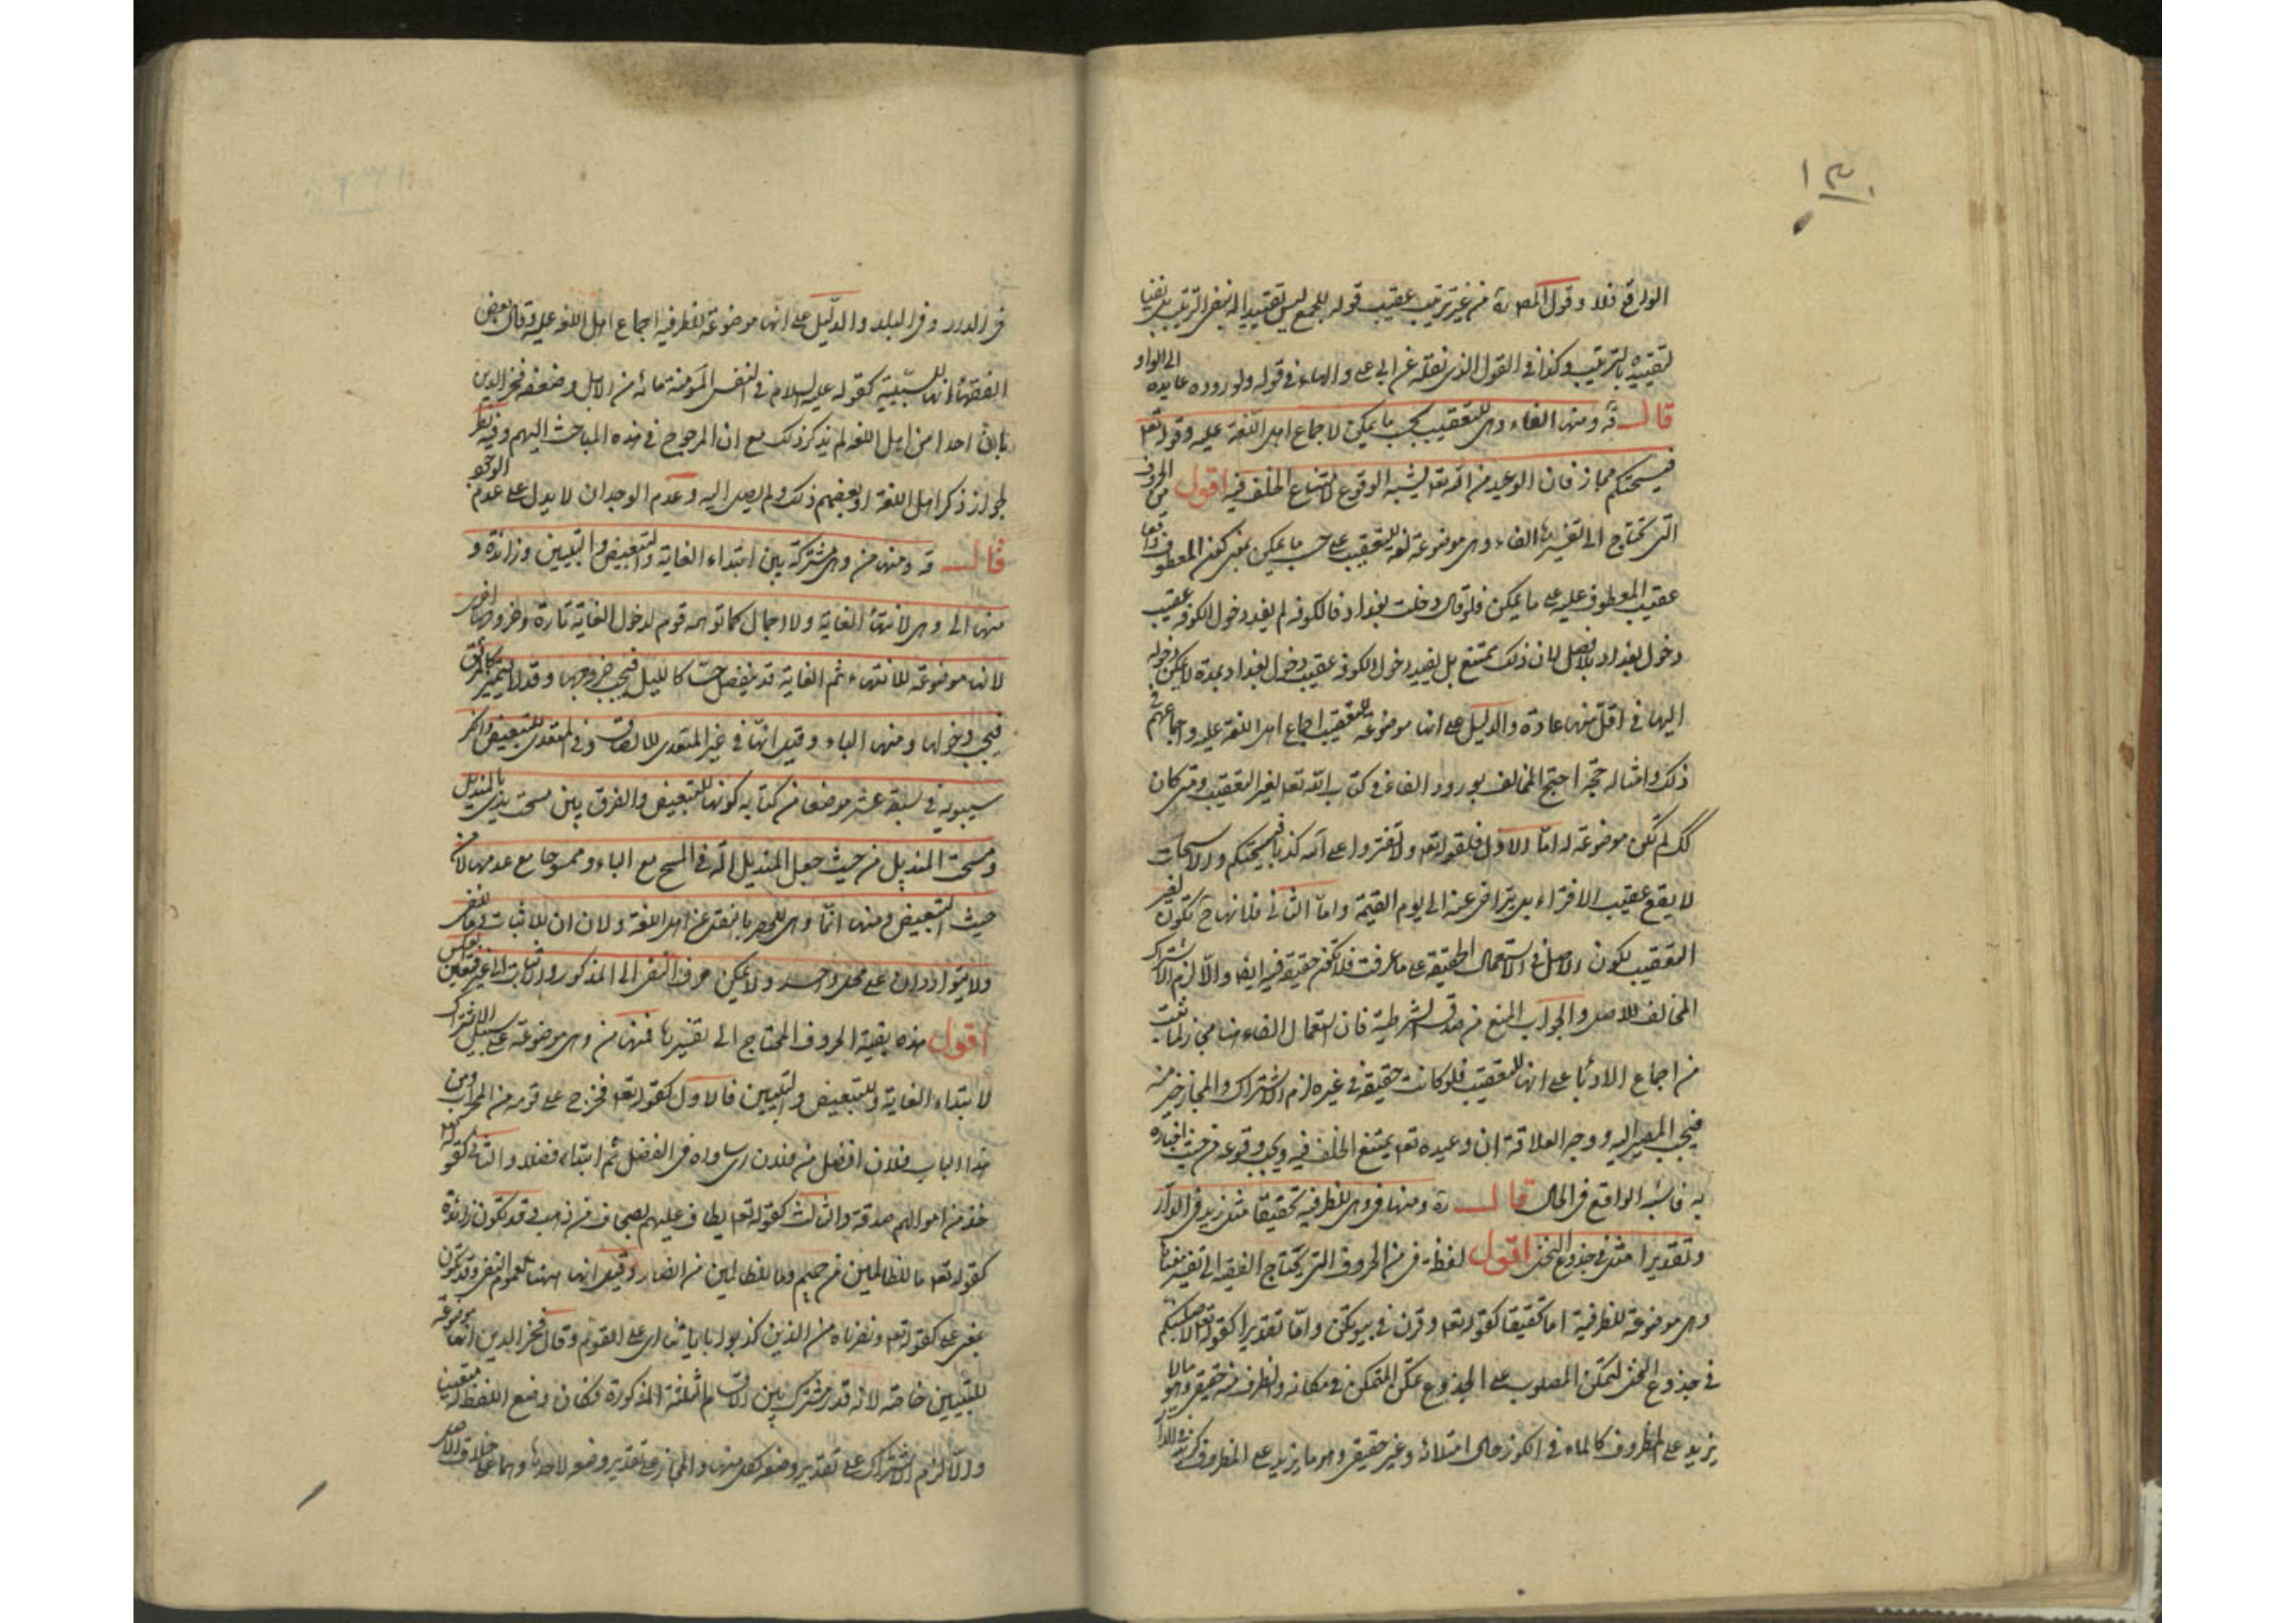 الواقع فلا وقول المص ره من غير ترتيب عقيب قوله للجمع ليس تقييدا له بنفي الترتيب بل نفيا
لتقييده بالترتيب وكذا في القول الذي نقله عن ابي علي والهاء في قوله ولوروده عايدة الى الواو
قال قه ومنها الفاء وهي للتعقيب بحسب ما يمكن لاجماع اهل اللغة عليه وقوله تعه
فيسحتكم مجاز فان الوعيد من الله تعه يشبه الوقوع لامتناع الخلف فيه اقول من الحروف
التي تحتاج الى تفسيرها الفاء وهي موضوعة لغة للتعقيب على حسب ما يمكن بمعنى كون المعطوف واقعا
عقيب المعطوف عليه على ما يمكن فلو قال دخلت بغداد فالكوفه لم يفد دخول الكوفه عقيب
دخول بغداد بلا فصل لان ذلك يمتنع بل يفيد دخول الكوفه عقيب دخول بغداد بمدة لا يمكن دخوله
اليها في اقل منها عادة والدليل على انها موضوعة للتعقيب اجماع اهل اللغة عليه واجماعهم في
ذلك وامثاله حجة احتج المخالف بورود الفاء في كتاب الله تعه لغير التعقيب ومتى كان
كك لم تكن موضوعة له اما الاول فلقوله تعه ولا تفتروا على الله كذبا فيسحتكم والاسحات
لا يقع عقيب الافتراء بل يتراخى عنه الى يوم القيمة واما الثاني فلانها ح تكون لغير
التعقيب لكون الاصل في الاستعمال الحقيقة على ما عرفت فلا تكون حقيقة فيه ايضا والا لزم الاشتراك
المخالف للاصل والجواب المنع من صدق الشرطية فان استعمال الفاء هنا مجاز لما ثبت
من اجماع الادباء على انها للتعقيب فلو كانت حقيقة في غيره لزم الاشتراك والمجاز خير منه
فيجب المصير اليه ووجه العلاقة ان وعيده تعه يمتنع الخلف فيه ويجب وقوعه من حيث اخباره
به فاشبه الواقع في الحال قال ره ومنها في وهي للظرفية تحقيقا مثل زيد في الدار
وتقديرا مثل في جذوع النخل اقول لفظة في من الحروف التي يحتاج الفقيه الى تفسير معناها
وهي موضوعة للظرفية اما تحقيقا كقوله تعه وقرن في بيوتكن واما تقديرا كقوله تعه لاصلبنكم
في جذوع النخل لتمكن المصلوب على الجذوع تمكن المتمكن في مكانه والظرف منه حقيقي وهو ما لا
يزيد على المظروف كالماء في الكوز حال امتلائه وغير حقيقي وهو ما يزيد على المظروف كزيد في الدار
في الدار وفي البلد والدليل على انها موضوعة للظرفية اجماع اهل اللغة عليه وقال بعض
الفقهاء انها للسببية كقوله عليه السلام في النفس المؤمنة مائة من الابل وضعفه فخر الدين
بان احدا من اهل اللغة لم يذكر ذلك مع ان المرجوع في هذه المباحث اليهم وفيه نظر
لجواز ذكر اهل اللغة او بعضهم ذلك ولم يصل اليه وعدم الوجدان لا يدل على عدم الوجود
قال قه ومنها من وهي مشتركة بين ابتداء الغاية والتبعيض والتبيين وزائدة و
منها الى وهي لانتهاء الغاية ولا اجمال كما توهمه قوم لدخول الغاية تارة وخروجها اخرى
لانها موضوعة للانتهاء ثم الغاية قد ينفصل حسا كالليل فيجب خروجها وقد لا يتميز كالمرفق
فيجب دخولها ومنها الباء وقيل انها في غير المتعدى للالصاق وفي المتعدى للتبعيض وانكر
سيبويه في سبعة عشر موضعا من كتابه كونها للتبعيض والفرق بين مسحت يدي بالمنديل
ومسحت المنديل من حيث جعل المنديل آلة في المسح مع الباء وممسوحا مع عدمها لا من
حيث التبعيض ومنها انما وهي للحصر بالنقل عن اهل اللغة ولان ان للاثبات وما للنفى
ولا يتواردان على محل واحد ولا يمكن صرف النفى الى المذكور والاثبات الى غيره فتعين العكس
اقول هذه بقية الحروف المحتاج الى تفسيرها فمنها من وهي موضوعة على سبيل الاشتراك
لابتداء الغاية وللتبعيض والتبيين فالاول كقوله تعه فخرج على قومه من المحراب ومن
هذا الباب فلان افضل من فلان اي ساواه في الفضل ثم ابتداء فضله والثاني كقوله تعه
خذ من اموالهم صدقة والثالث كقوله تعه يطاف عليهم بصحاف من ذهب وقد تكون زائدة
كقوله تعه ما للظالمين من حميم وما للظالمين من انصار وقيل انها ههنا لعموم النفى وقد تكون
بمعنى على كقوله تعه ونصرناه من الذين كذبوا باياتنا اي على القوم وقال فخر الدين انها موضوعة
للتبيين خاصة لانه قدر مشترك بين الاقسام الثلثة المذكورة فكان وضع اللفظ له متعين
والا لزم الاشتراك على تقدير وضعه لكل منها والمجاز على تقدير وضعه لاحدها وهما على خلاف الاصل